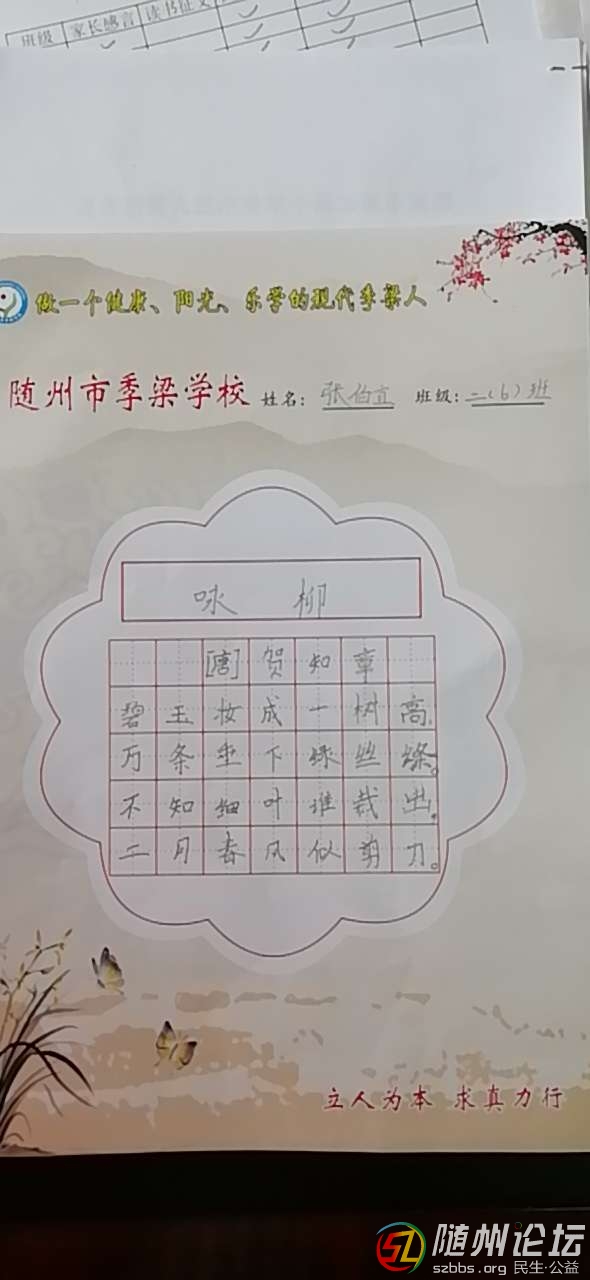 班级 家长感言 读书征文
做一个健康、阳光、乐学的现代季梁人
随州市季梁学校 姓名: 张伯宜 班级: 二(6)班
咏 柳
[唐] 贺知章
碧玉妆成一树高,
万条垂下绿丝绦。
不知细叶谁裁出,
二月春风似剪刀。
立人为本 求真力行
随州论坛
szbbs.org 民生·公益